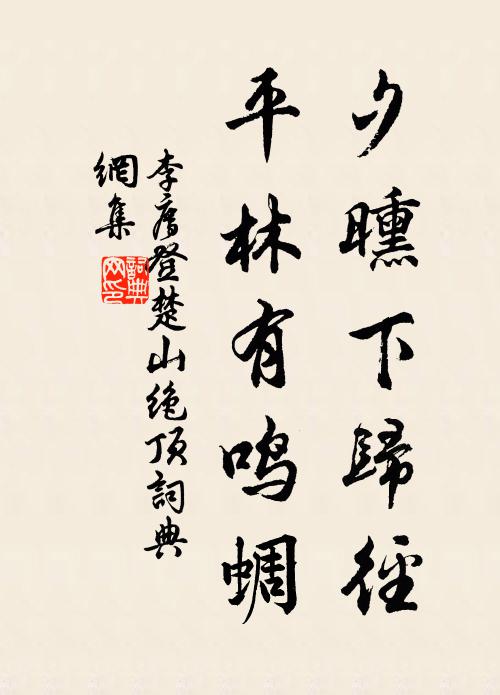 夕曛下歸徑
平林有鳴蜩
李廌登楚山绝頂詞典
網集
詞典
网印